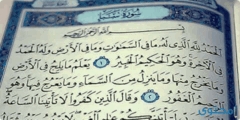 سُورَةُ سَبَأ
بِسْمِ اللَّهِ الرَّحْمَٰنِ الرَّحِيمِ
الْحَمْدُ لِلَّهِ الَّذِي لَهُ مَا فِي السَّمَٰوَٰتِ وَمَا فِي الْأَرْضِ وَلَهُ الْحَمْدُ
فِي الْآخِرَةِ وَهُوَ الْحَكِيمُ الْخَبِيرُ ١ يَعْلَمُ مَا يَلِجُ فِي الْأَرْضِ
وَمَا يَخْرُجُ مِنْهَا وَمَا يَنزِلُ مِنَ السَّمَاءِ وَمَا يَعْرُجُ فِيهَا وَهُوَ
الْغَفُورُ ٢ وَقَالَ الَّذِينَ كَفَرُوا لَا تَأْتِينَا السَّاعَةُ